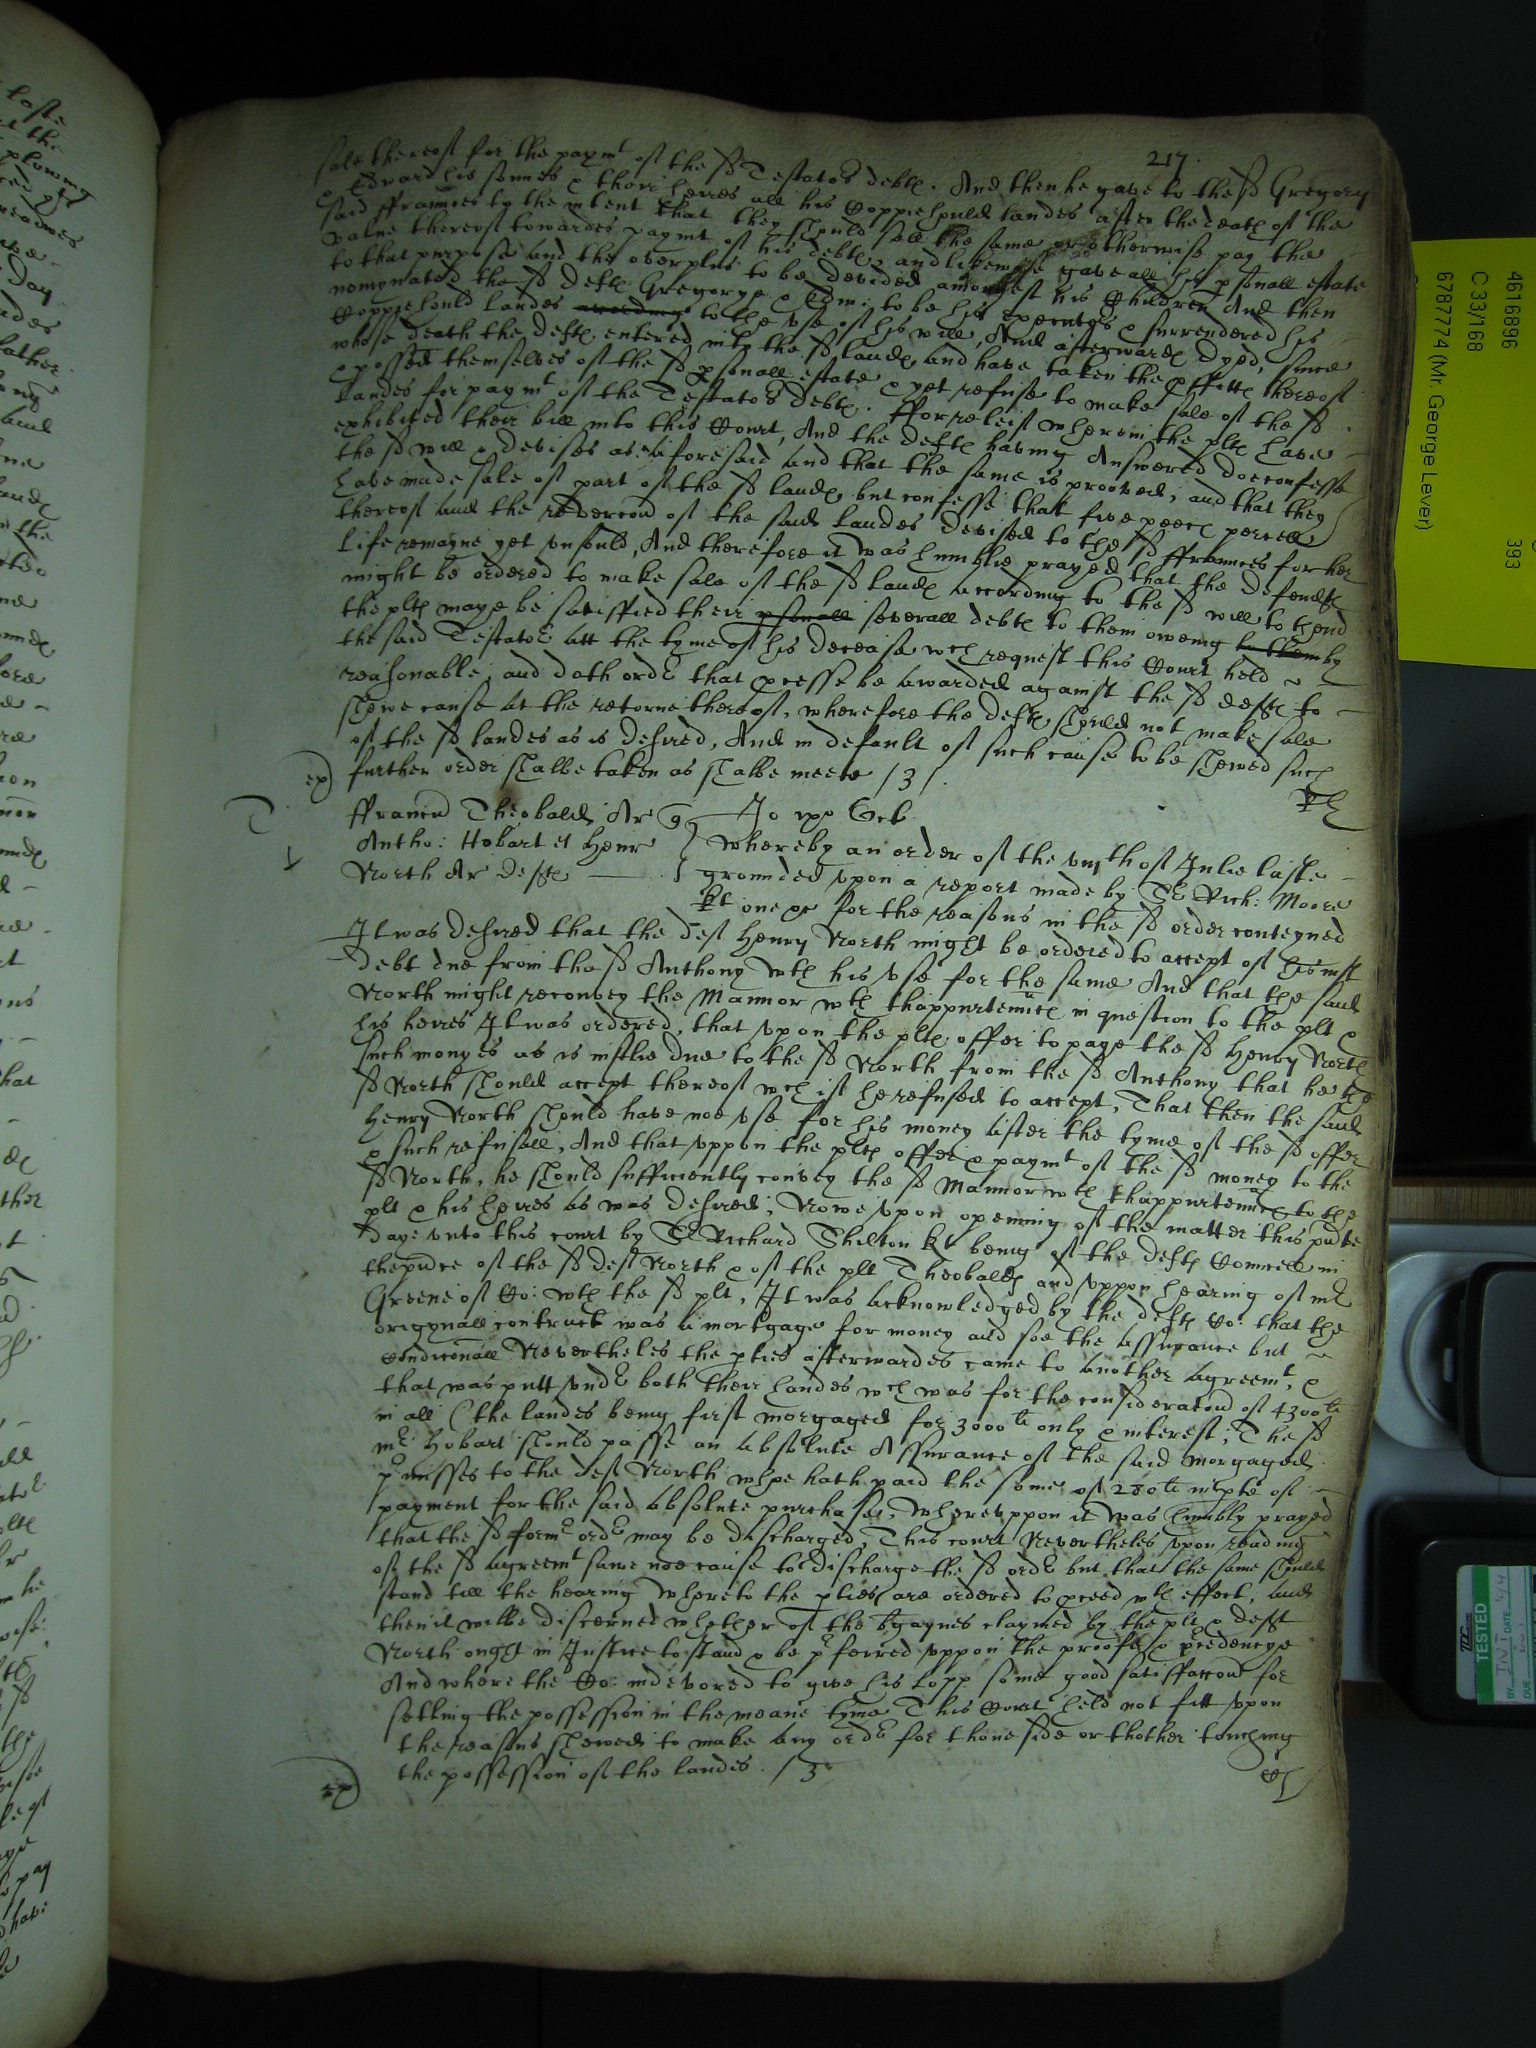 217.
sale thereof for the paymt of the sd Testators debts. And then he gave to the sd Gregory
& Edward his sonnes & their heires all his Coppiehould landes after the death of the
said ffraunces to the intent that they should sell the same or otherwise pay the
value thereof towardes paymt of his debts, and likewise gave all his psonall estate
to that purpose and the overplus to be devided amongest his Children And then
nomynated the sd defts Gregorye & Edw: to be his executors & surrendered his
Coppiehould landes according to the use of his will, And afterwards dyed, since
whose death the defts entered into the sd lands and have taken the pffitts thereof
& possest themselves of the sd psonall estate & yet refuse to make sale of the sd
landes for paymt of the Testators debts. ffor releif wherein the plts have
exhibited their bill into this Court, And the defts having Answered doe confesse
the sd will & devises as aforesaid and that the same is prooved, and that they
have made sale of part of the sd lands but confesse that five peecs percell
thereof and the revercon of the said landes devised to the sd ffraunces for her
life remayne yet unsould, And therefore it was humblie prayed that the defendts
might be ordered to make sale of the sd lands according to the sd will to thend
the plts maye be satisffied their psonall severall debts to them oweing to them by
the said Testator att the tyme of his decease wch request this Court held
reasonable, and doth order that pcesse be awarded against the sd defts to
shewe cause at the retorne thereof, wherefore the defts should not make sale
of the sd landes as is desired, And in default of such cause to be shewed such
further order shalbe taken as shalbe meete /3/.
ex)
T
ffrancis Theobalds Ar qr
Jo xxo Octb
Antho: Hobart et Henr
North Ar defts
whereby an order of the viijth of Julie laste
grounded upon a report made by Sr Rich: Moore
kt one &c for the reasons in the sd order conteyned
It was desired that the deft Henry North might be ordered to accept of his just
debt due from the sd Anthony wth his use for the same And that the said
North might reconvey the Mannor wth thappurtenncs in question to the plt &
his heires It was ordered, that upon the plts offer to paye the sd Henry North
such monyes as is justlie due to the sd North from the sd Anthony that he the
sd North should accept thereof wch if he refused to accept, That then the said
Henry North should have noe use for his money after the tyme of the sd offer
& such refusall, And that uppon the plts offer & paymt of the sd money to the
sd North, he should sufficiently convey the sd Mannor wth thappurtenncs to the
plt & his heires as was desired; Nowe upon opening of the matter this pnte
day: unto this court by Sr Richard Shilton kt being of the defts Councell in
the pnce of the sd deft North & of the plt Theobalds and uppon hearing of mr
Greene of Co: wth the sd plt, It was acknowledged by the defts Co: that the
origynall contract was a mortgage for money and soe the assurance but
Condiconall Nevertheles the pties afterwardes came to another agreemt, &
that was putt under both their handes wch was for the consideracon of 4300li
in all (the landes being first morgaged for 3000li only & interest; The sd
mr Hobart should passe an absolute Assurance of the said morgaged
pmisses to the deft North whoe hath paid the some of 280li in pte of
payment for the said absolute purchase, Whereuppon it was humbly prayed
that the sd former order may be discharged, This court Nevertheles upon reading
of the sd agreemt sawe noe cause to discharge the sd order but that the same should
stand till the hearing whereto the pties are ordered to pceed wth effect, and
then it wilbe discerned whether of the bargaynes claymed by the plt & deft
North ought in Justice to stand & be pferred uppon the proofes & pcedencye
And where the Co: indevored to give his Lopp some good satisffaccon for
setling the possession in the meane tyme This Court held not fitt upon
the reasons shewed to make any order for thone side or thother touching
the possession of the landes. /3
ex)
4616896
C 33/168
6787774 (Mr. George Lever)
393
TESTED
BY
DATE
DUE